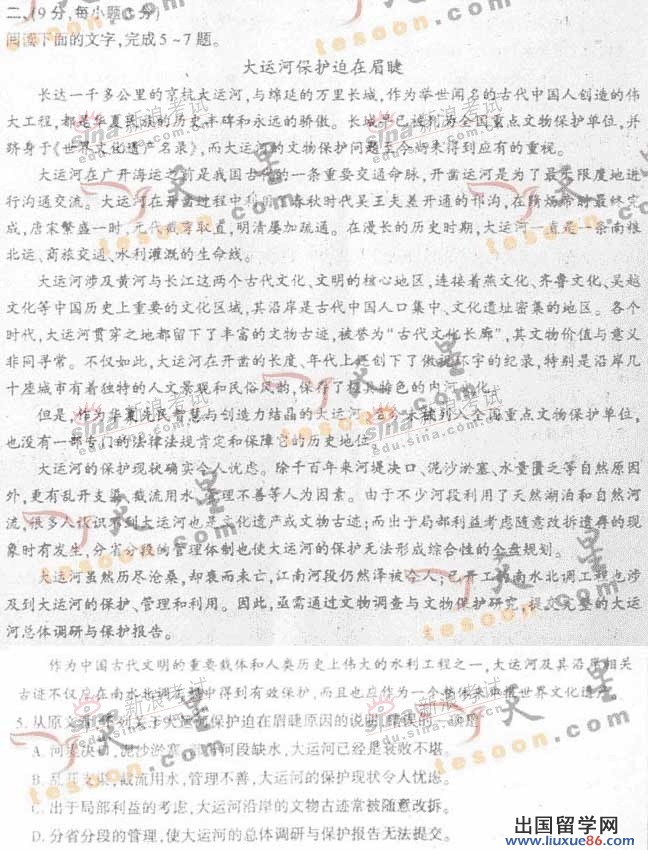 二、(9分,每小题3分)
阅读下面的文字,完成5~7题。
大运河保护迫在眉睫
长达一千多公里的京杭大运河,与绵延的万里长城,作为举世闻名的古代中国人创造的伟
大工程,都是华夏民族的历史丰碑和永远的骄傲。长城早已被列为全国重点文物保护单位,并
跻身于《世界文化遗产名录》,而大运河的文物保护问题至今却未得到应有的重视。
大运河在广开海运之前是我国古代的一条重要交通命脉,开凿运河是为了最大限度地进
行沟通交流。大运河在开凿过程中利用了春秋时代吴王夫差开通的邗沟,在隋炀帝时最终完
成,唐宋繁盛一时,元代截弯取直,明清屡加疏通。在漫长的历史时期,大运河一直是一条南粮
北运、商旅交通、水利灌溉的生命线。
大运河涉及黄河与长江这两个古代文化、文明的核心地区,连接着燕文化、齐鲁文化、吴越
文化等中国历史上重要的文化区域,其沿岸是古代中国人口集中、文化遗址密集的地区。各个
时代,大运河贯穿之地都留下了丰富的文物古迹,被誉为“古代文化长廊”,其文物价值与意义
非同寻常。不仅如此,大运河在开凿的长度、年代上还创下了傲视环宇的纪录,特别是沿岸几
十座城市有着独特的人文景观和民俗风韵,保存了极具特色的内河文化。
但是,作为华夏先民智慧与创造力结晶的大运河,至今未被列入全国重点文物保护单位,
也没有一部专门的法律法规肯定和保障它的历史地位。
大运河的保护现状确实令人忧虑。除千百年来河堤决口、泥沙淤塞、水量匮乏等自然原因
外,更有乱开支渠、截流用水、管理不善等人为因素。由于不少河段利用了天然湖泊和自然河
流,很多人认识不到大运河也是文化遗产或文物古迹;而出于局部利益考虑随意改拆遗存的现
象时有发生,分省分段的管理体制也使大运河的保护无法形成综合性的全盘规划。
大运河虽然历尽沧桑,却衰而未亡,江南河段仍然泽被今人;已开工的南水北调工程也涉
及到大运河的保护、管理和利用。因此,亟需通过文物调查与文物保护研究,提交完整的大运
河总体调研与保护报告。
作为中国古代文明的重要载体和人类历史上伟大的水利工程之一,大运河及其沿岸相关
古迹不仅应在南水北调工程中得到有效保护,而且也应作为一个整体来申报世界文化遗产。
5.从原文看,下列关于大运河保护迫在眉睫原因的说明,错误的一项是
A.河堤决口,泥沙淤塞,河段缺水,大运河已经是衰败不堪。
B.乱开支渠,截流用水,管理不善,大运河的保护现状令人忧虑。
C.出于局部利益的考虑,大运河沿岸的文物古迹常被随意改拆。
D.分省分段的管理,使大运河的总体调研与保护报告无法提交。
出国留学网
www.liuxue86.com